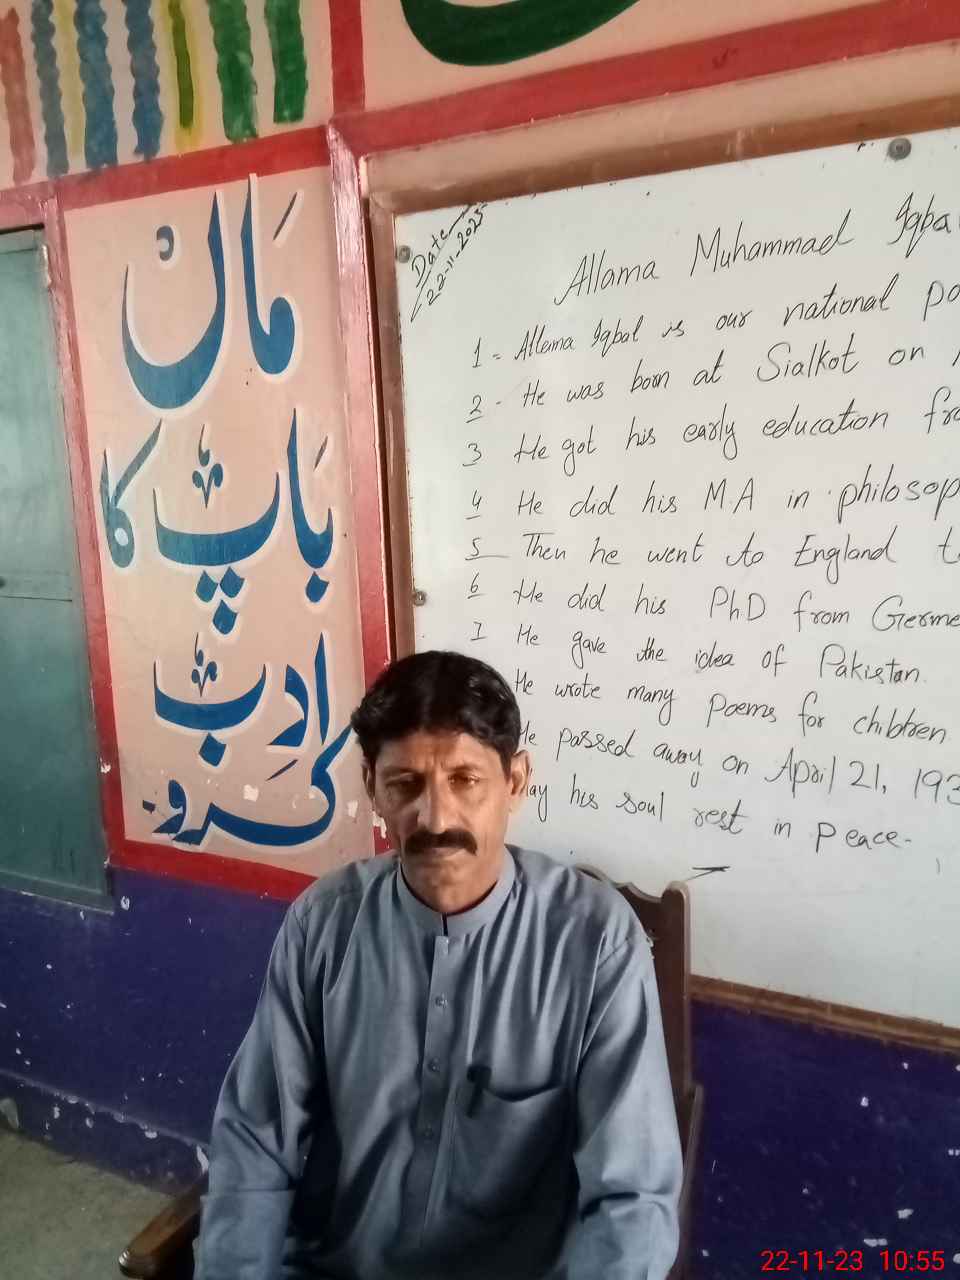 ماں
باپ کا
ادب
کرو
Date
22-11-2025
Allama Muhammad Iqba
1- Allama Iqbal is our national po
2- He was born at Sialkot on
3 He got his early education fro
4 He did his M.A in philosop
5 Then he went to England t
6 He did his PhD from Germe
7 He gave the idea of Pakistan.
He wrote many Poems for children
He passed away on April 21, 193
May his soul rest in peace.
22-11-23 10:55